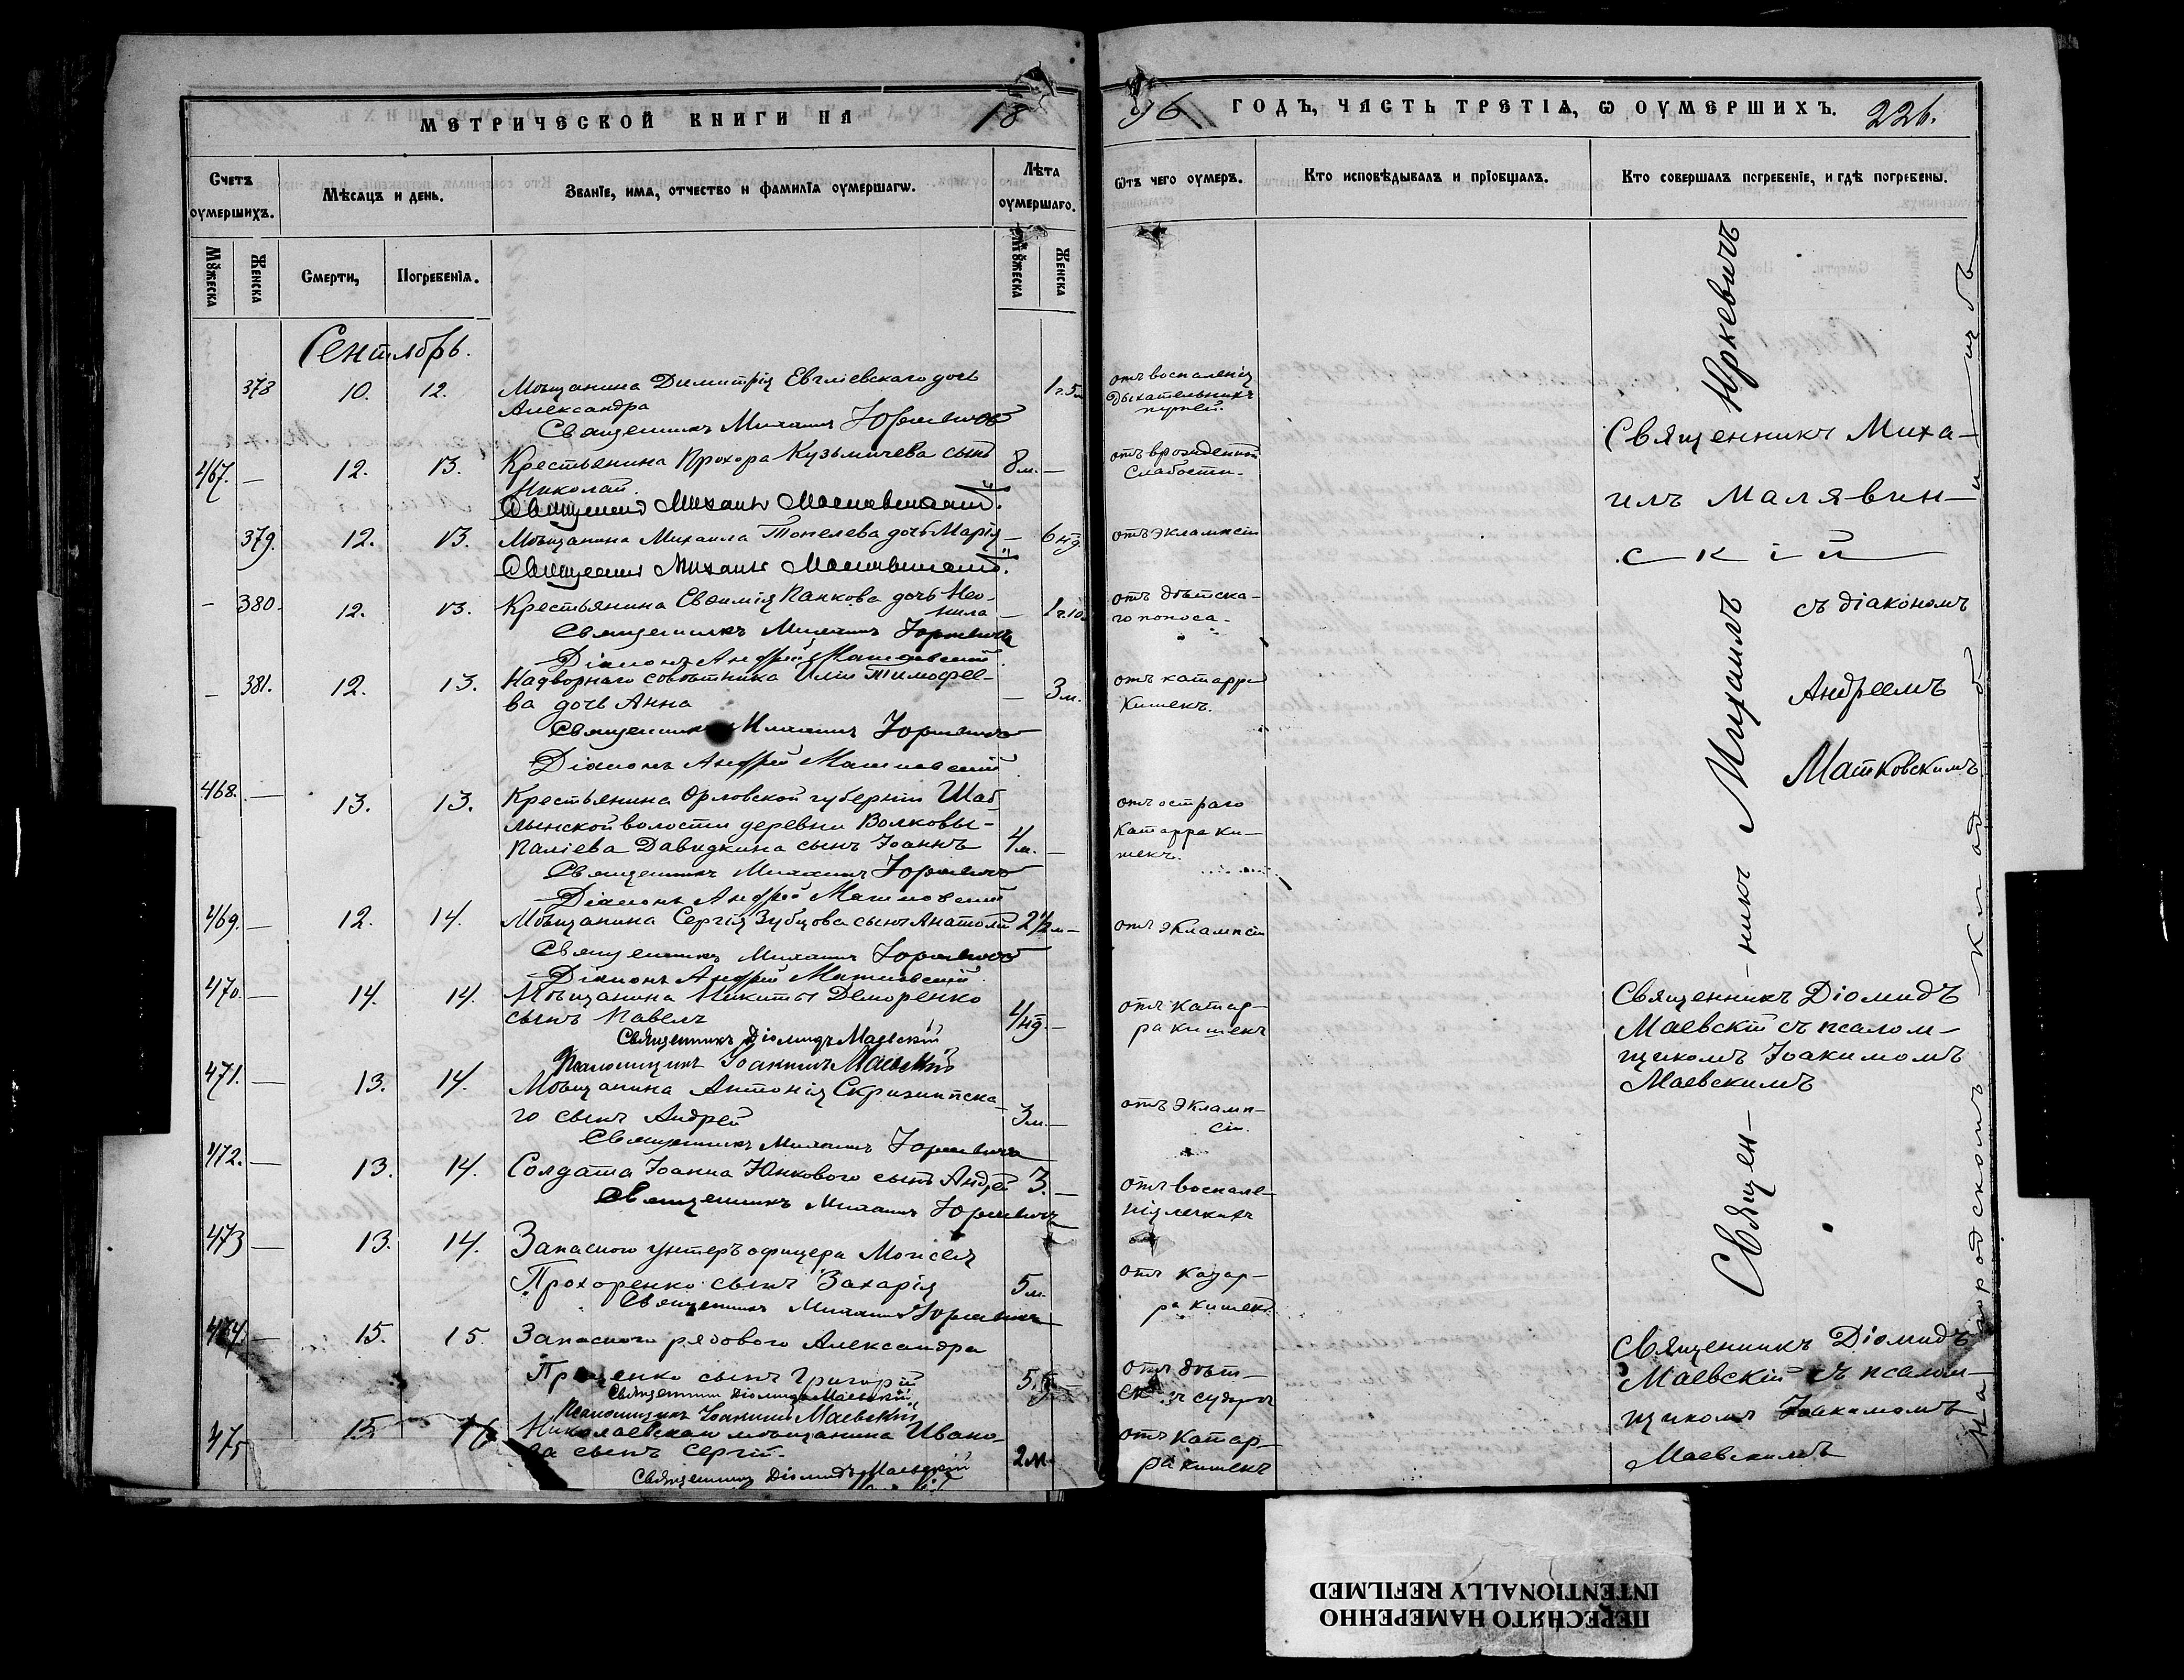 МЕТРИЧЕСКОЙ КНИГИ НА 18
96 ГОДЪ, ЧАСТЬ ТРЕТІѦ, Ѡ ОУМЕРШИХЪ. 226.
Счетъ оумершихъ.
Мѣсѧцъ и день.
Званїе, имѧ, отчество и фамилїа оумершагѡ.
Лѣта оумершаго.
Ѿтъ чего оумеръ.
Кто исповѣдывалъ и прїобщалъ.
Кто совершалъ погребенїе, и гдѣ погребены.
Мꙋжеска
Женска
Смерти,
Погребенїѧ.
Мꙋжеска
Женска
Сентябрь.
378 10. 12. Мѣщанина Димитрія Евгліевскаго дочь 1 г. 5 м. отъ воспаленія
Александра дыхательныхъ
Священникъ Михаилъ Юркевичъ путей.
467. — 12. 13. Крестьянина Прохора Кузьмичева сынъ 8 м. — отъ врожденной
Николай. слабости.
Священникъ Михаилъ Малявинскій.
379. 12. 13. Мѣщанина Михаила Топелева дочь Марія — 6 нд. отъ эклампсіи
Священникъ Михаилъ Малявинскій.
— 380. 12. 13. Крестьянина Евѳимія Панкова дочь Нео- отъ дѣтска-
нила — 1 г. 10 го поноса.
Священникъ Михаилъ Юркевичъ
Діаконъ Андрей Матковскій.
— 381. 12. 13. Надворнаго совѣтника Иліи Тимофее- — 3 м. отъ катарра
ва дочь Анна кишекъ.
Священникъ Михаилъ Юркевичъ
Діаконъ Андрей Матковскій
468. — 13. 13. Крестьянина Орловской губерніи Шаб- отъ остраго
лынской волости деревни Волковы- катарра ки-
Паліева Давидкина сынъ Іоаннъ 4 м. — шекъ.
Священникъ Михаилъ Юркевичъ
Діаконъ Андрей Матковскій
469. — 12. 14. Мѣщанина Сергія Зубцова сынъ Анатолій 2 1/2 м — отъ эклампсіи
Священникъ Михаилъ Юркевичъ
Діаконъ Андрей Матковскій.
470. — 14. 14. Мѣщанина Никиты Деморенко отъ катар-
сынъ Павелъ 4 нд. — ра кишекъ
Священникъ Діомидъ Маевскій
Псаломщикъ Іоакимъ Маевскій
471. — 13. 14. Мѣщанина Антонія Скризипска- отъ эклamп-
го сынъ Андрей 3 м. — сіи.
Священникъ Михаилъ Юркевичъ
472. — 13. 14. Солдата Іоанна Юнкового сынъ Андрей 3. — отъ воспале-
Священникъ Михаилъ Юркевичъ нія легкихъ
473 — 13. 14. Запаснаго унтеръ офицера Моисея
Прохоренко сынъ Захарія 5 м. отъ катар-
Священникъ Михаилъ Юркевичъ ра кишекъ.
474. — 15. 15 Запаснаго рядоваго Александра
сынъ Григорій отъ дѣт-
Священникъ Діомидъ Маевскій судорогъ
Псаломщикъ Іоакимъ Маевскій
475 15 16 Николаевскаго мѣщанина Ивано- отъ катар-
ва сынъ Сергій. 2 м. ра кишекъ
Священникъ Діомидъ Маевскій
Священникъ Миха-
илъ Малявин-
скій
съ діакономъ
Андреемъ
Матковскимъ
Священникъ Діомидъ
Маевскій съ псалом-
щикомъ Іоакимомъ
Маевскимъ
Священникъ Діомидъ
Маевскій съ псалом-
щикомъ Іоакимомъ
Маевскимъ
Священ-никъ Михаилъ Юркевичъ
На городскомъ кладбищѣ
ПЕРЕСНЯТО НАМЕРЕННО
INTENTIONALLY REFILMED